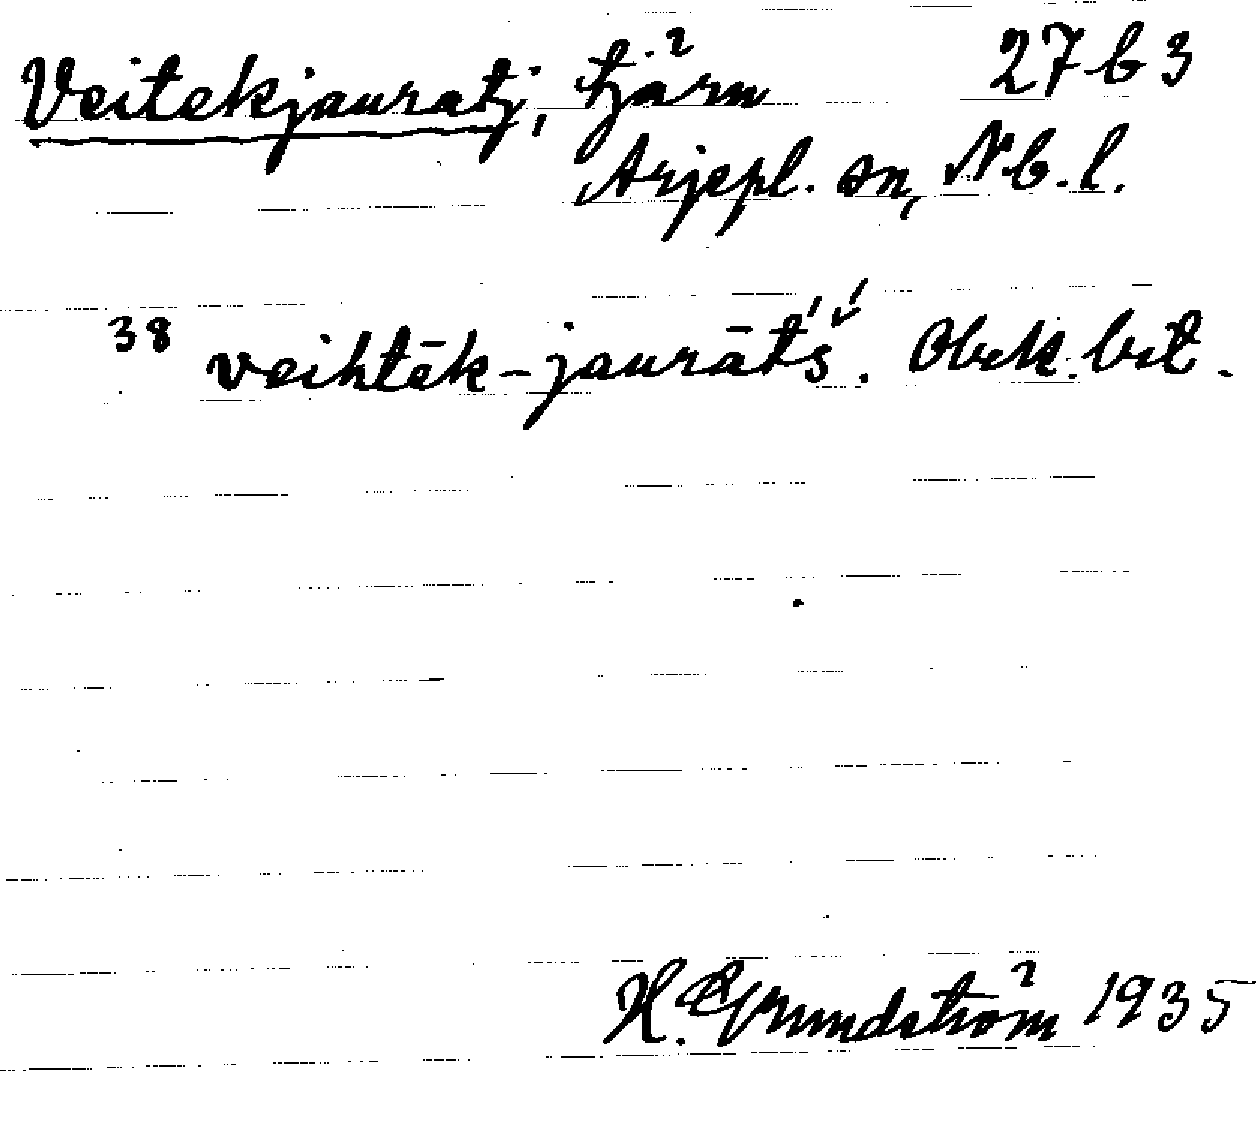 Veitekjauratj, tjärn 27 b 3
Arjepl. sn, Nb. l.
38 veihtēk-jaurāt́š́. Obek. bet.
H. Grundström 1935